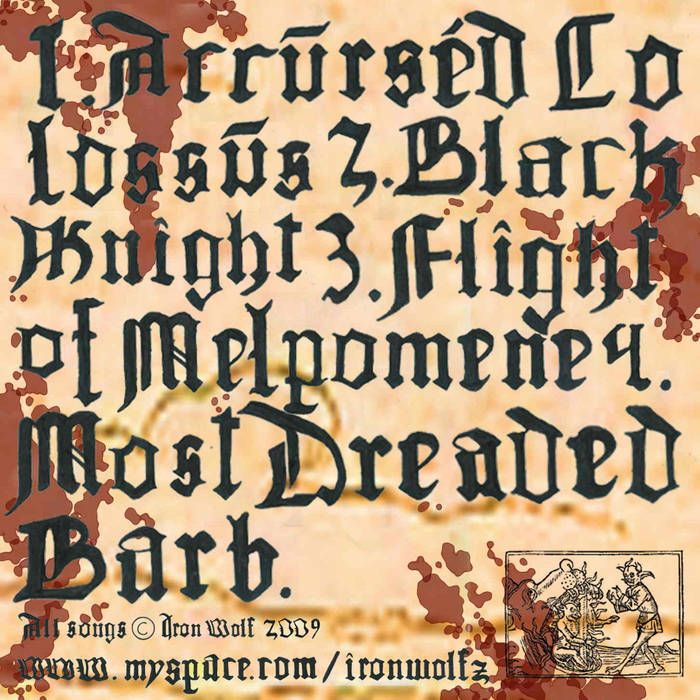 1. Accūrséd Co
lossūs 2. Black
Knîght 3. Flîght
of Melpomene 4.
Most Dreaded
Barb.
All songs © Iron Wolf 2009
www.myspace.com/îronwolfz